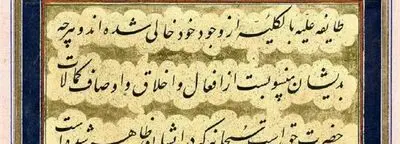 طایفه علیه بالکلیه از وجود خود خالی شده اند و هرچه
بدیشان منسوبست از افعال و اخلاق و اوصاف و کمالات
حضرت حق است سبحانه که در ایشان ظاهر شده است